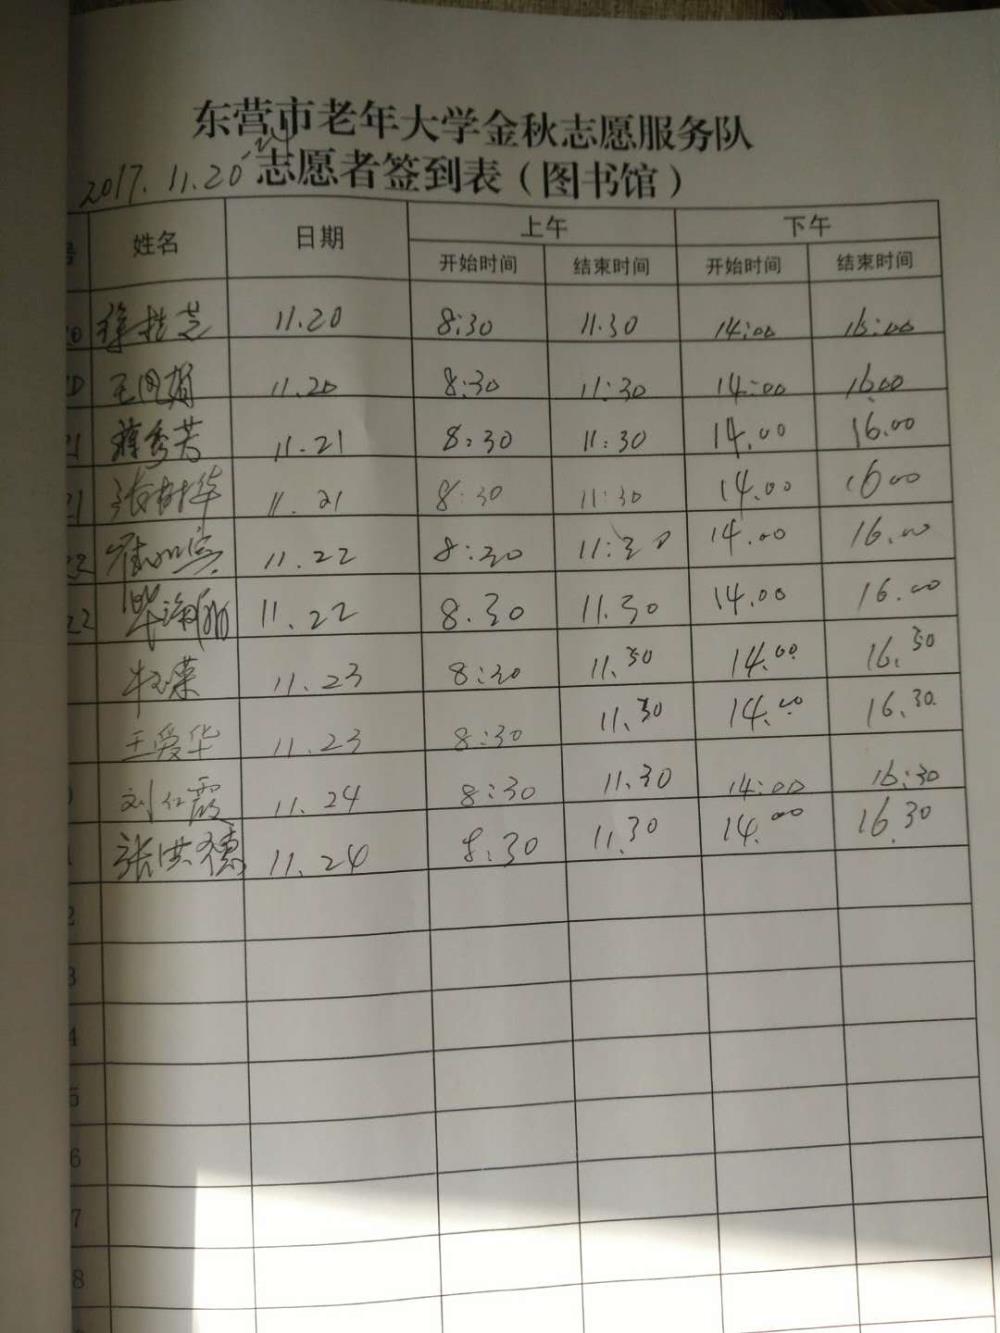 东营市老年大学金秋志愿服务队
2017.11.20 志愿者签到表（图书馆）
姓名 日期 上午 下午
开始时间 结束时间 开始时间 结束时间
11.20 8:30 11.30 14:00 16:00
11.20 8:30 11:30 14:00 16.00
蒋秀芳 11.21 8:30 11:30 14.00 16.00
张树华 11.21 8:30 11:30 14.00 16.00
11.22 8:30 11:30 14.00 16.00
11.22 8.30 11.30 14.00 16.00
11.23 8:30 11.30 14.00 16.30
王爱华 11.23 8:30 11.30 14.00 16.30
刘仁霞 11.24 8:30 11.30 14:00 16:30
张洪德 11.24 8:30 11.30 14.00 16.30
2
3
4
5
6
7
8